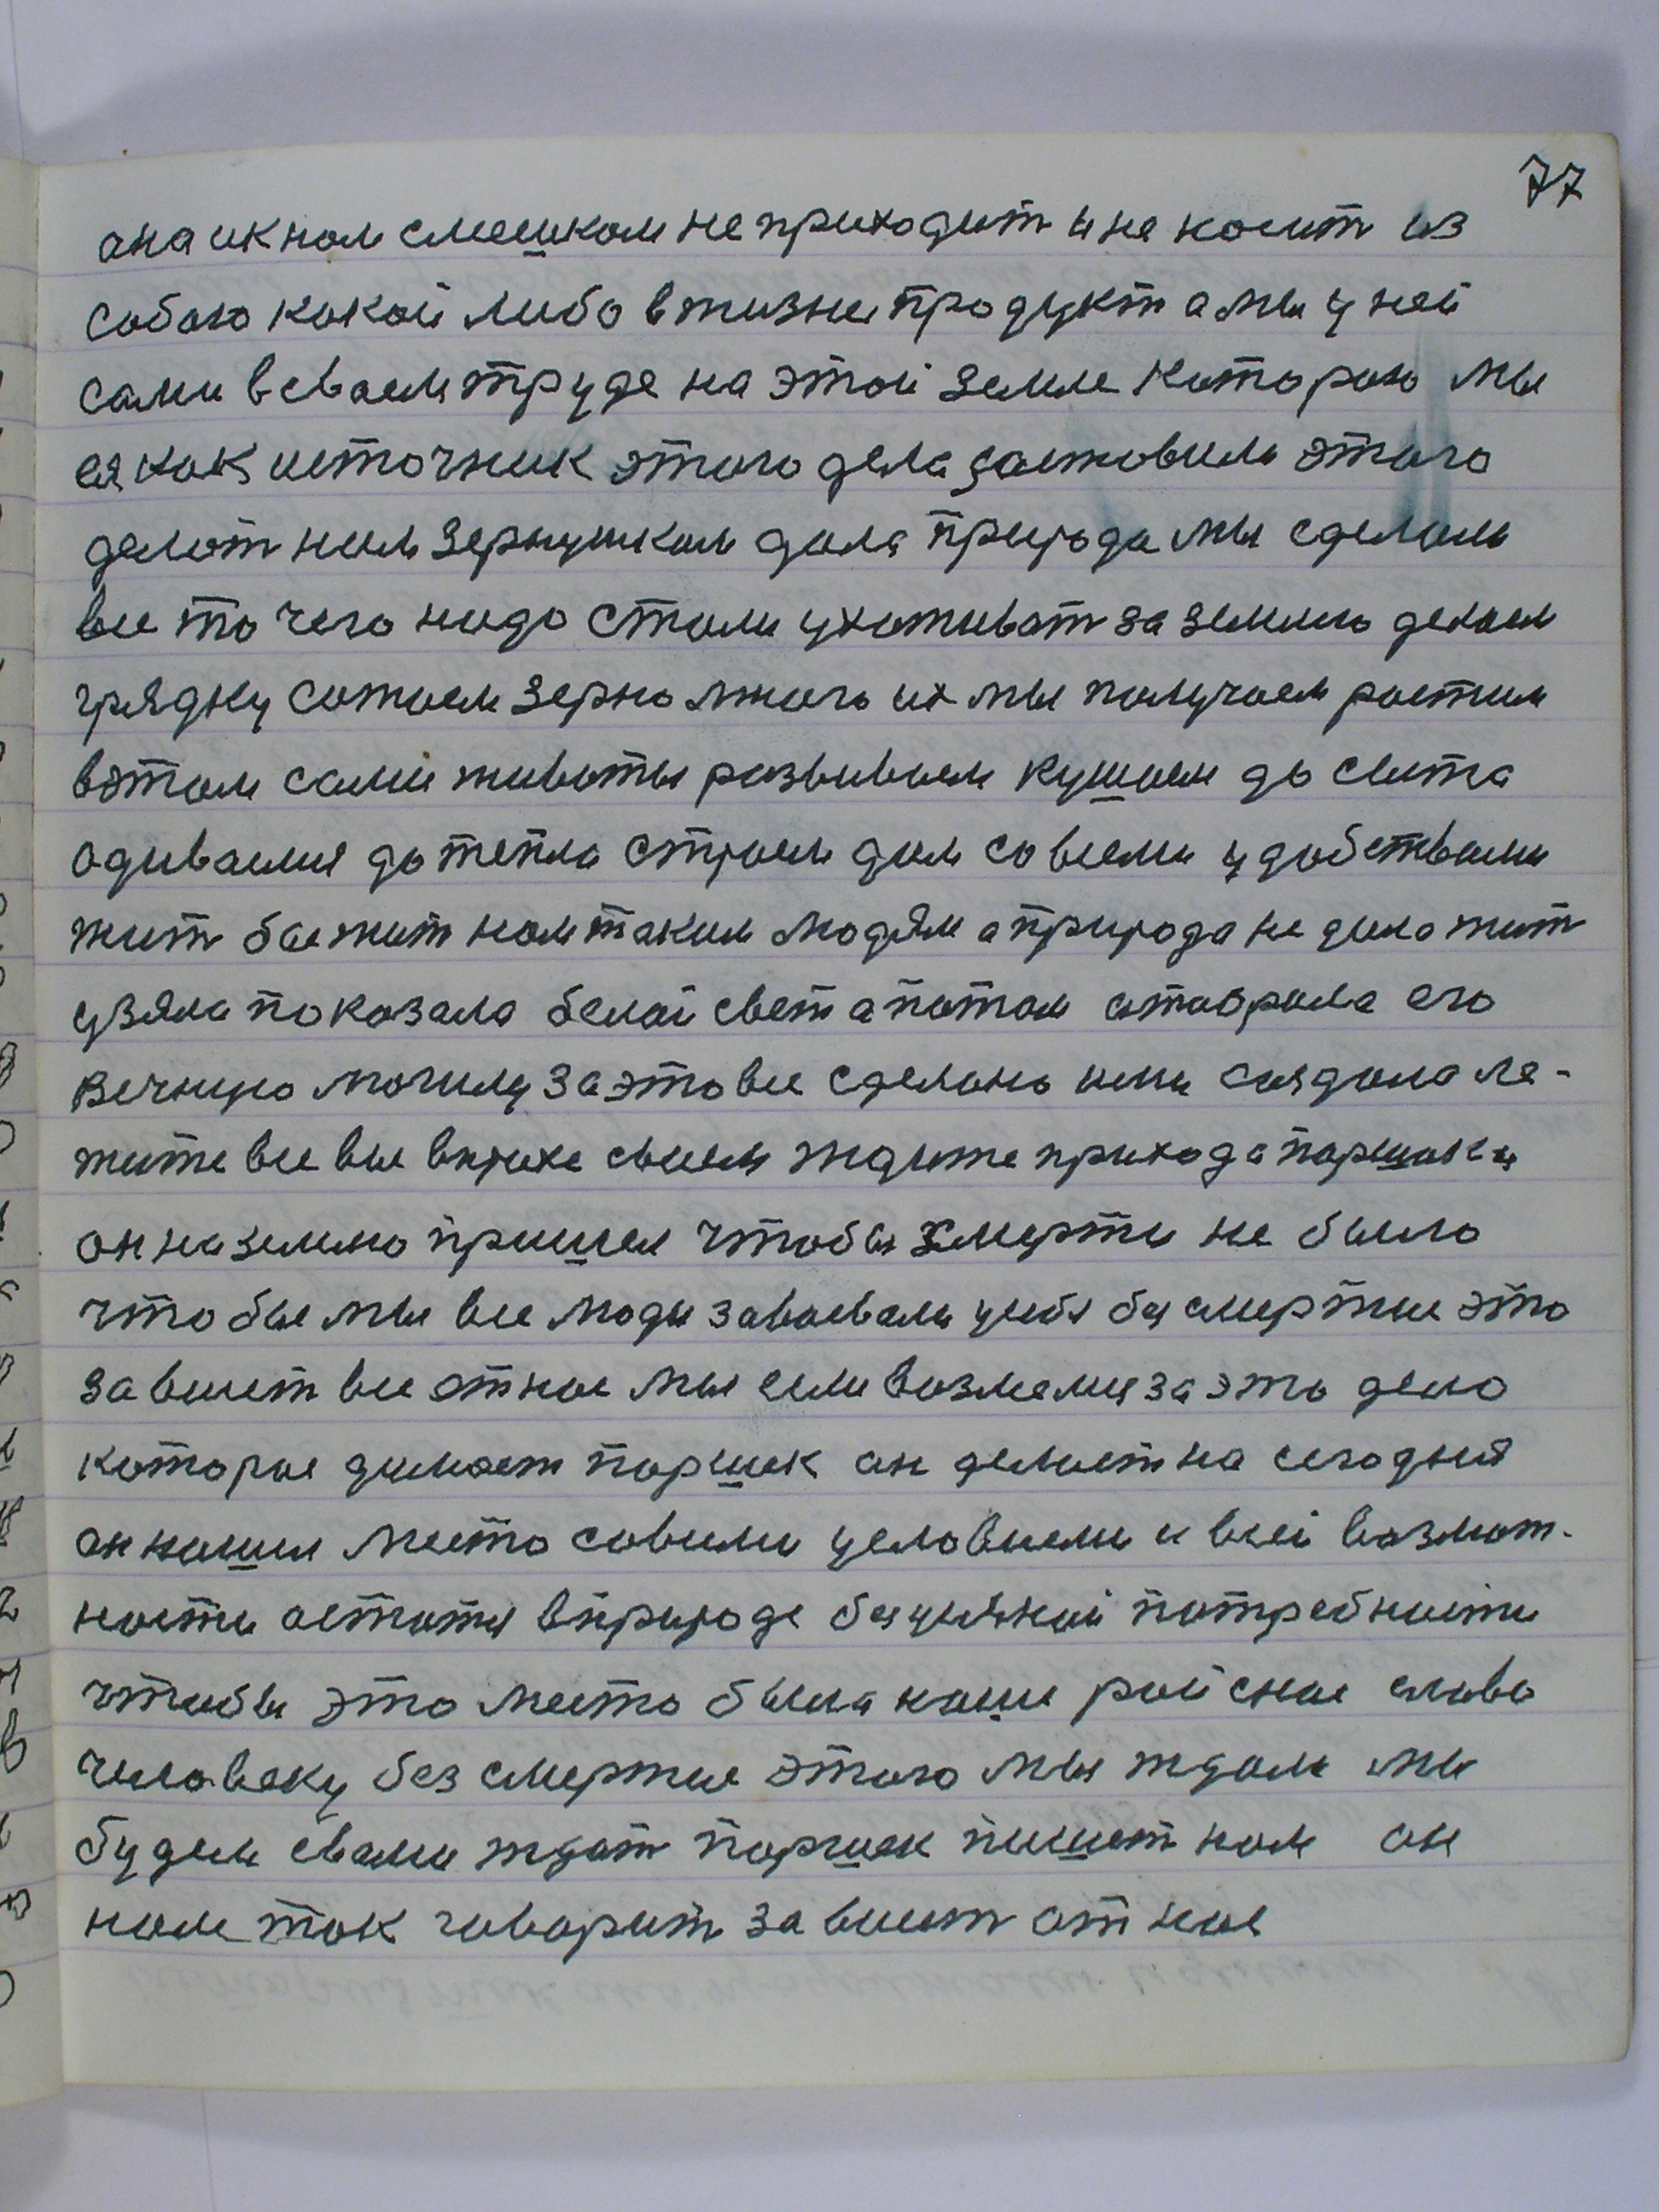 77
она ик нам смешком не приходит и не носит из
собою какой либо в жизне продукт а мы у ней
сами в сваем труде на этой земле которою мы
ея как источник этого дела заставили этого
делат ним зернушком дала природа мы сделали
все то чего надо стали ухаживат за землею делаем
грядку сажаем зерно много их мы получаем растим
вэтом сами животы развиваем кушаем до сыта
одиваемся до тепла строем дом со всеми удобствами
жит бы жит нам таким людям а природа не дала жит
узяла показала белай свет а потом створила его
вечную могилу за это все сделано ими создала ле-
жите все вы впрахе своем ждите прихода паршека
он на землю пришел чтобы смерти не было
что бы мы все люди завоевали усебя бессмертие это
зависит все от нас мы если возмемся за это дело
которое думает паршек он делает на сегодня
он нашел место совсеми условиеми и всей возмож-
ности остатся в природе без усякой потребности
чтобы это место было наше райское слава
человеку без смертие этого мы ждали мы
будем свами ждат паршек пишет нам он
нам так говорит зависит от нас